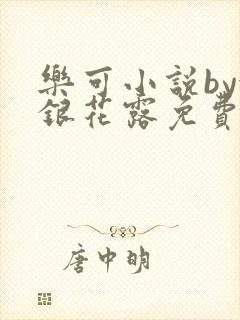 樂可小說by
銀花露免費
唐中明